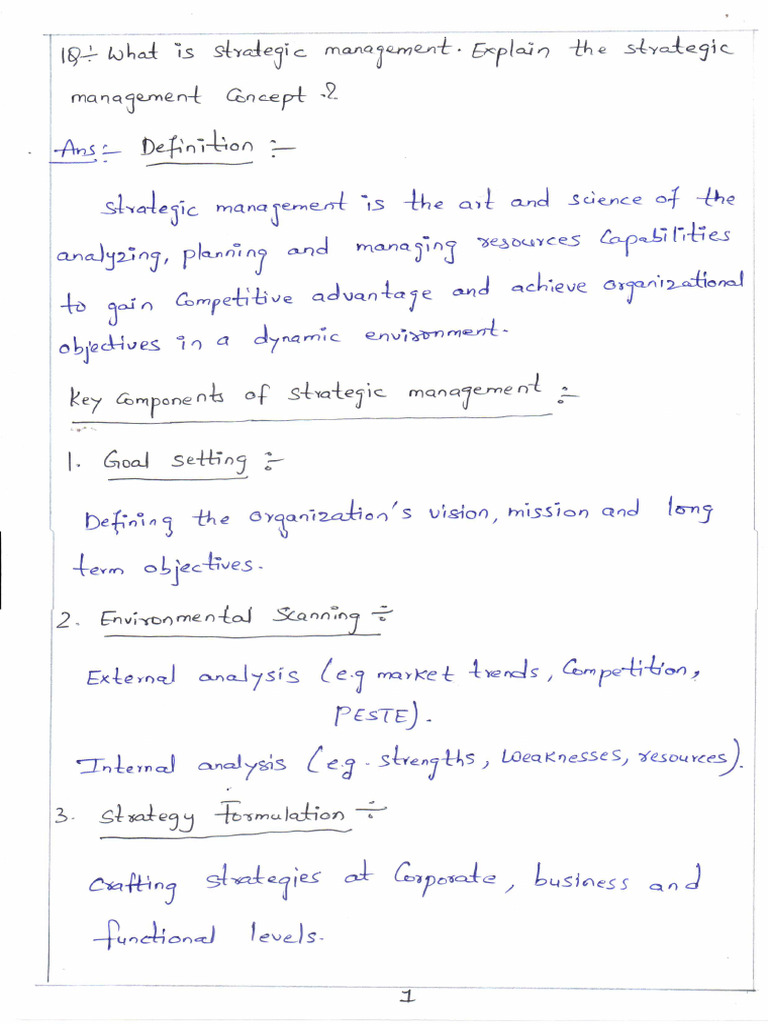 1Q÷ What is strategic management. Explain the strategic
management Concept .?
Ans:- Definition :-
Strategic management is the art and science of the
analyzing, planning and managing resources Capabilities
to gain Competitive advantage and achieve organizational
objectives in a dynamic environment.
Key Components of strategic management :-
1. Goal setting :-
Defining the organization's vision, mission and long
term objectives.
2. Environmental Scanning ÷
External analysis (e.g market trends, Competition,
PESTE).
Internal analysis (e.g. strengths, Weaknesses, resources).
3. Strategy Formulation ÷
Crafting strategies at Corporate, business and
functional levels.
1